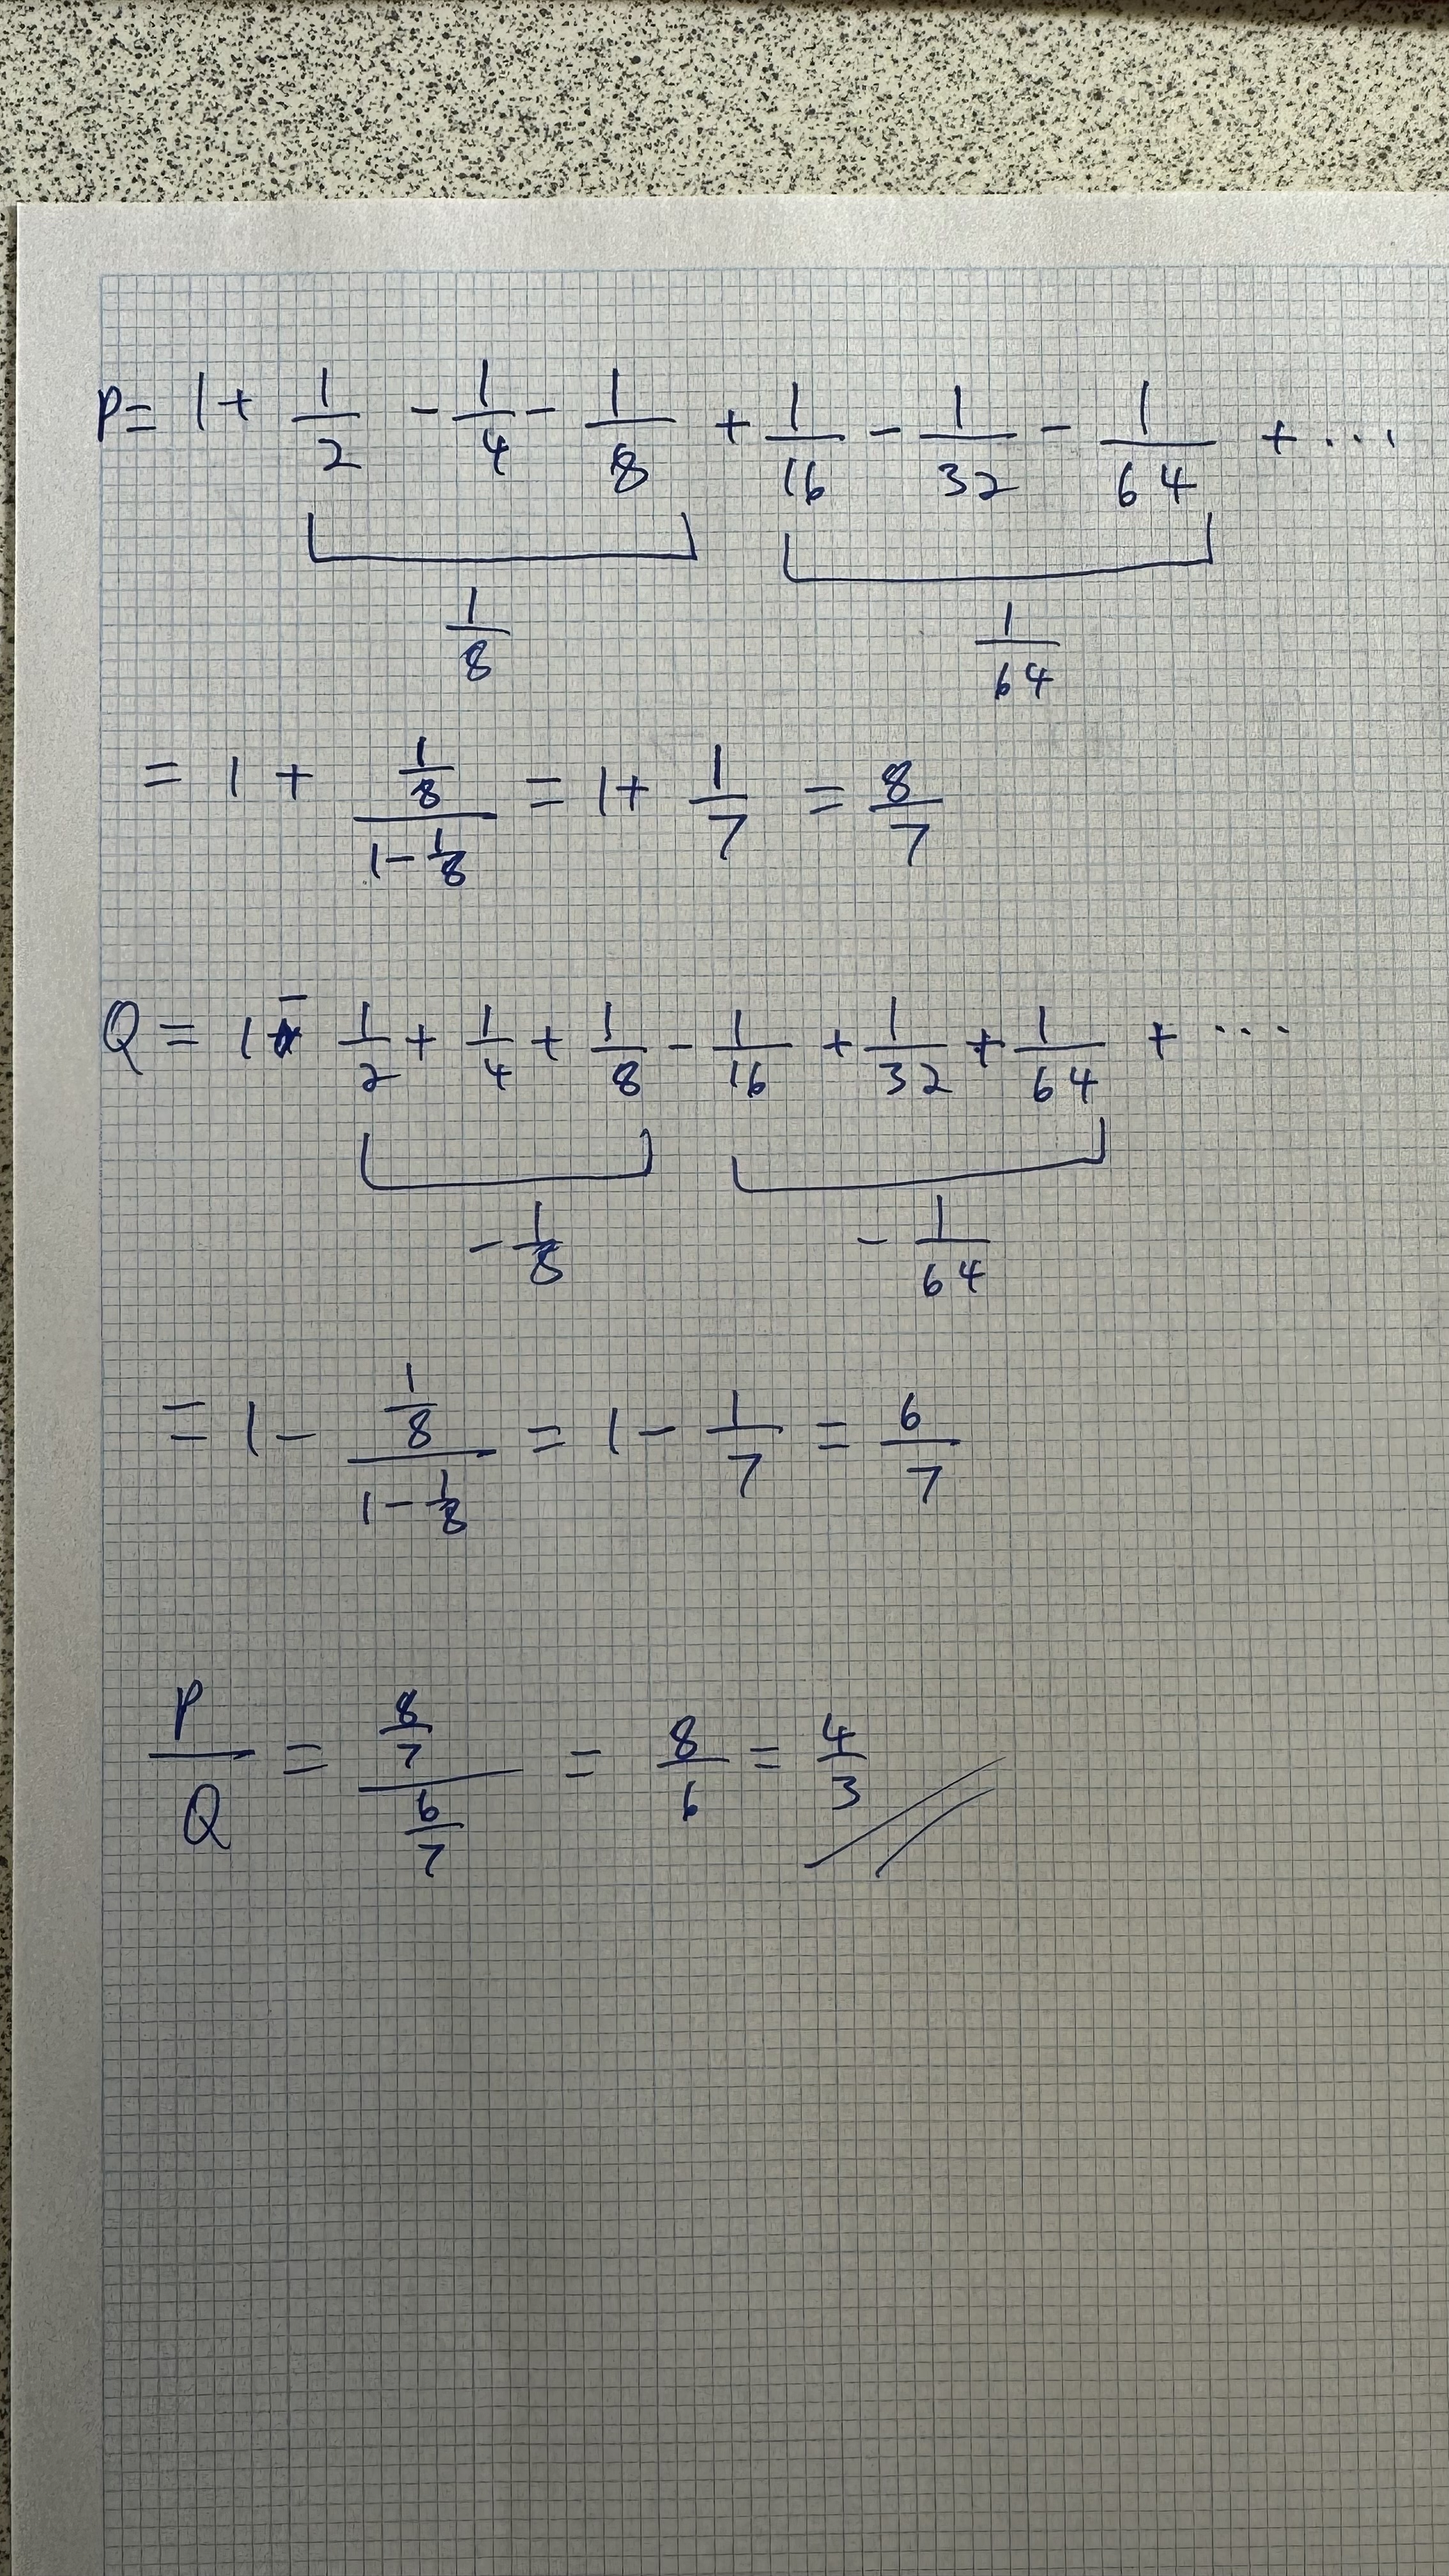 P = 1 + 1/2 - 1/4 - 1/8 + 1/16 - 1/32 - 1/64 + ...
1/8 1/64
= 1 + (1/8)/(1 - 1/8) = 1 + 1/7 = 8/7
Q = 1 - 1/2 + 1/4 + 1/8 - 1/16 + 1/32 + 1/64 + ...
- 1/8 - 1/64
= 1 - (1/8)/(1 - 1/8) = 1 - 1/7 = 6/7
P/Q = (8/7)/(6/7) = 8/6 = 4/3